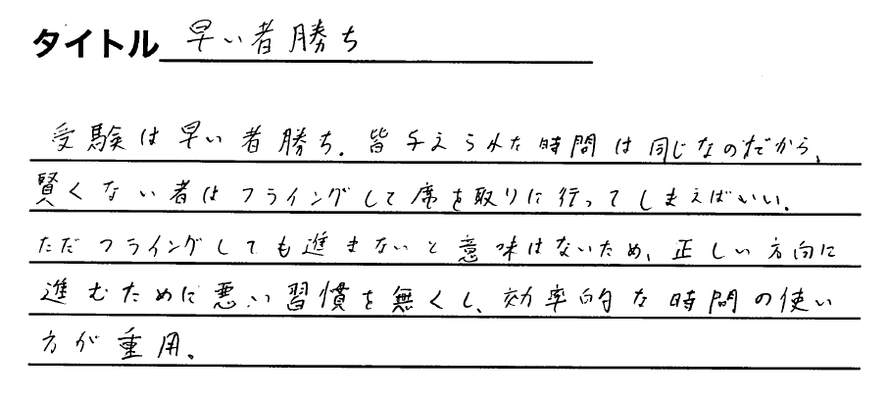 タイトル 早い者勝ち
受験は早い者勝ち。皆与えられた時間は同じなのだから、
賢くない者はフライングして席を取りに行ってしまえばいい。
ただフライングしても進まないと意味はないため、正しい方向に
進むために悪い習慣を無くし、効率的な時間の使い
方が重用。